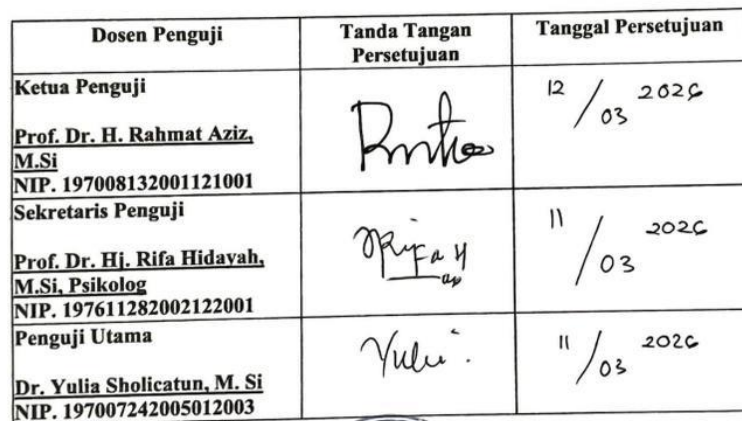 Dosen Penguji
Tanda Tangan
Persetujuan
Tanggal Persetujuan
Ketua Penguji
Prof. Dr. H. Rahmat Aziz,
M.Si
NIP. 197008132001121001
12 / 03 2026
Sekretaris Penguji
Prof. Dr. Hj. Rifa Hidayah,
M.Si, Psikolog
NIP. 197611282002122001
11 / 03 2026
Penguji Utama
Dr. Yulia Sholicatun, M. Si
NIP. 197007242005012003
11 / 03 2026